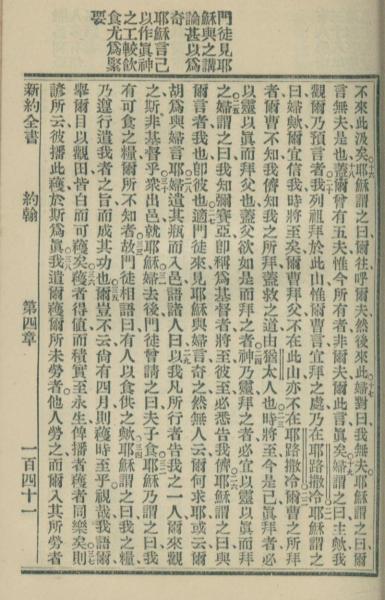 門徒見耶
穌與之講
論甚以爲
奇
耶穌言己
以作眞神
之工較飲
食尤爲緊
要
不來此汲矣耶穌謂之曰爾往呼爾夫然後來此婦對曰我無夫耶穌謂爾
言無夫是也蓋爾曾有五夫惟今所有者非爾夫爾此言眞矣婦謂之曰主歟我
觀爾乃預言者我列祖拜於此山惟爾曹言宜拜之處乃在耶路撒冷耶穌謂之
曰婦歟爾宜信我時將至矣爾曹拜父不在此山亦不在耶路撒冷爾曹之所拜
者爾曹不知我儕知我之所拜蓋救之道由猶太人也時將至今是已眞拜者必
以靈以眞而拜父也蓋父欲如是而拜之者神乃靈拜之者必宜以靈以眞而拜
之婦謂之曰我知彌賽亞卽稱爲基督者將至彼至必悉告我儕耶穌謂之曰與
爾言者我也卽彼也適門徒來見耶穌與婦言奇之然無人云爾何求耶或云爾
胡爲與婦言耶婦遺其瓶而入邑語諸人曰以我凡所行者告我之一人爾來觀
之斯非基督乎衆出邑就耶穌婦去後門徒曾請之曰夫子食耶穌乃謂之曰我
有可食之糧爾所不知者故門徒相語曰有人以食供之歟耶穌謂之曰我之糧
乃遵行遣我者之旨而成其功也爾豈不云尙有四月則穫時至乎視哉我語爾
舉爾目以觀田皆白而可穫矣穫者得値而積實至永生俾播者穫者同樂矣則
諺所云彼播此穫於斯爲眞我遣爾穫爾所未勞者他人勞之而爾入其所勞者
新約全書　約翰　第四章　一百四十一